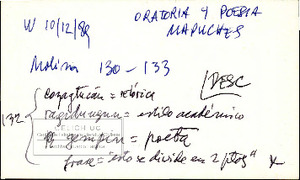 W 10/12/89
ORATORIA Y POESIA
MAPUCHES
Molina 130-133
DESC
132
coyagtucán = retórica
ragidungun = estilo académico
gempin = poeta
frase = "esto se divide en 2 ptos"